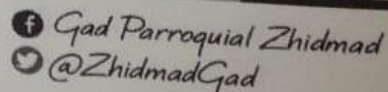 Gad Parroquial Zhidmad
@ZhidmadGad